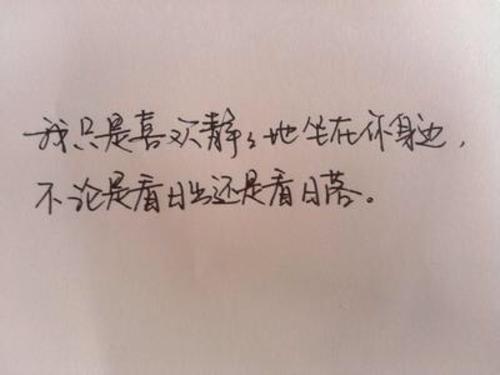 我只是喜欢静々地坐在你身边，
不论是看日出还是看日落。